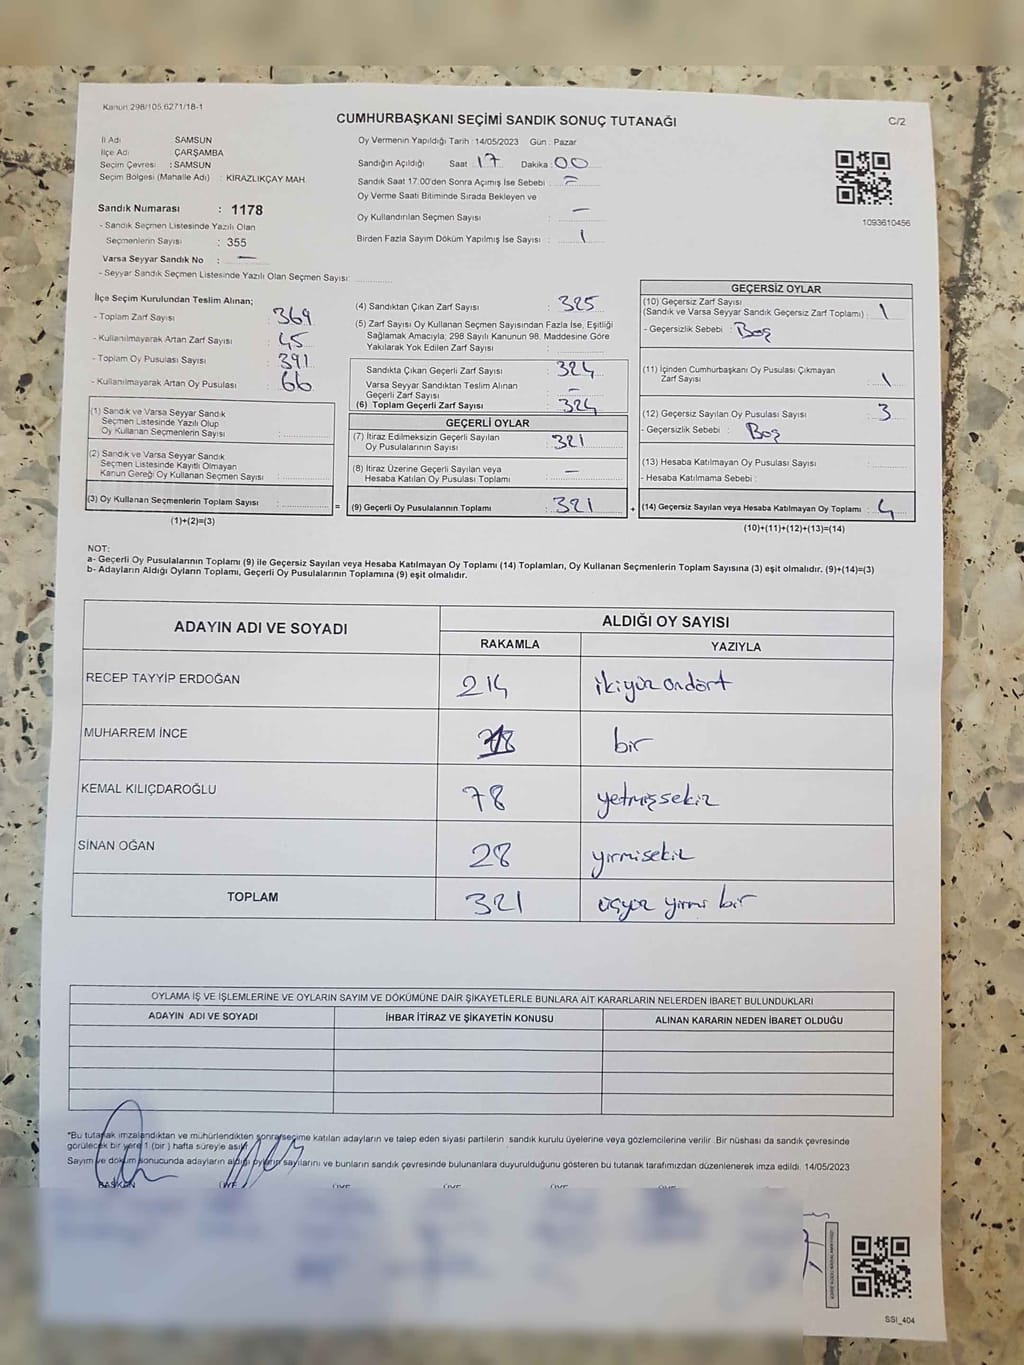 Kanun 298/105,6271/18-1
CUMHURBAŞKANI SEÇİMİ SANDIK SONUÇ TUTANAĞI
C/2
İl Adı : SAMSUN
İlçe Adı : ÇARŞAMBA
Seçim Çevresi : SAMSUN
Seçim Bölgesi (Mahalle Adı) : KİRAZLIKÇAY MAH.
Sandık Numarası : 1178
- Sandık Seçmen Listesinde Yazılı Olan
Seçmenlerin Sayısı : 355
Varsa Seyyar Sandık No : —
- Seyyar Sandık Seçmen Listesinde Yazılı Olan Seçmen Sayısı:
Oy Vermenin Yapıldığı Tarih : 14/05/2023 Gün : Pazar
Sandığın Açıldığı Saat : 17 Dakika : 00
Sandık Saat 17:00'den Sonra Açımış İse Sebebi :
Oy Verme Saati Bitiminde Sırada Bekleyen ve
Oy Kullandırılan Seçmen Sayısı : —
Birden Fazla Sayım Döküm Yapılmış İse Sayısı : 1
1093610456
İlçe Seçim Kurulundan Teslim Alınan;
- Toplam Zarf Sayısı : 369
- Kullanılmayarak Artan Zarf Sayısı : 45
- Toplam Oy Pusulası Sayısı : 391
- Kullanılmayarak Artan Oy Pusulası : 66
(1) Sandık ve Varsa Seyyar Sandık
Seçmen Listesinde Yazılı Olup
Oy Kullanan Seçmenlerin Sayısı :
(2) Sandık ve Varsa Seyyar Sandık
Seçmen Listesinde Kayıtlı Olmayan
Kanun Gereği Oy Kullanan Seçmen Sayısı :
(3) Oy Kullanan Seçmenlerin Toplam Sayısı :
(1)+(2)=(3)
(4) Sandıktan Çıkan Zarf Sayısı : 325
(5) Zarf Sayısı Oy Kullanan Seçmen Sayısından Fazla İse, Eşitliği
Sağlamak Amacıyla; 298 Sayılı Kanunun 98. Maddesine Göre
Yakılarak Yok Edilen Zarf Sayısı :
Sandıkta Çıkan Geçerli Zarf Sayısı : 324
Varsa Seyyar Sandıktan Teslim Alınan
Geçerli Zarf Sayısı : —
(6) Toplam Geçerli Zarf Sayısı : 324
GEÇERLİ OYLAR
(7) İtiraz Edilmeksizin Geçerli Sayılan
Oy Pusulalarının Sayısı : 321
(8) İtiraz Üzerine Geçerli Sayılan veya
Hesaba Katılan Oy Pusulası Toplamı : —
(9) Geçerli Oy Pusulalarının Toplamı : 321
GEÇERSİZ OYLAR
(10) Geçersiz Zarf Sayısı
(Sandık ve Varsa Seyyar Sandık Geçersiz Zarf Toplamı) : 1
- Geçersizlik Sebebi : Boş
(11) İçinden Cumhurbaşkanı Oy Pusulası Çıkmayan
Zarf Sayısı : \
(12) Geçersiz Sayılan Oy Pusulası Sayısı : 3
- Geçersizlik Sebebi : Boş
(13) Hesaba Katılmayan Oy Pusulası Sayısı :
- Hesaba Katılmama Sebebi :
(14) Geçersiz Sayılan veya Hesaba Katılmayan Oy Toplamı : 4
(10)+(11)+(12)+(13)=(14)
NOT:
a- Geçerli Oy Pusulalarının Toplamı (9) ile Geçersiz Sayılan veya Hesaba Katılmayan Oy Toplamı (14) Toplamları, Oy Kullanan Seçmenlerin Toplam Sayısına (3) eşit olmalıdır. (9)+(14)=(3)
b- Adayların Aldığı Oyların Toplamı, Geçerli Oy Pusulalarının Toplamına (9) eşit olmalıdır.
ADAYIN ADI VE SOYADI
ALDIĞI OY SAYISI
RAKAMLA YAZIYLA
RECEP TAYYİP ERDOĞAN 214 ikiyüz ondört
MUHARREM İNCE bir
KEMAL KILIÇDAROĞLU 78 yetmişsekiz
SİNAN OĞAN 28 yirmisekiz
TOPLAM 321 üçyüz yirmi bir
OYLAMA İŞ VE İŞLEMLERİNE VE OYLARIN SAYIM VE DÖKÜMÜNE DAİR ŞİKAYETLERLE BUNLARA AİT KARARLARIN NELERDEN İBARET BULUNDUKLARI
ADAYIN ADI VE SOYADI İHBAR İTİRAZ VE ŞİKAYETİN KONUSU ALINAN KARARIN NEDEN İBARET OLDUĞU
*Bu tutanak imzalandıktan ve mühürlendikten sonra seçime katılan adayların ve talep eden siyasi partilerin sandık kurulu üyelerine veya gözlemcilerine verilir. Bir nüshası da sandık çevresinde
görülecek bir yere 1 (bir) hafta süreyle asılır.
Sayım ve döküm sonucunda adayların aldığı oyların sayılarını ve bunların sandık çevresinde bulunanlara duyurulduğunu gösteren bu tutanak tarafımızdan düzenlenerek imza edildi. 14/05/2023
BAŞKAN ÜYE ÜYE ÜYE ÜYE ÜYE ÜYE
SSI_404